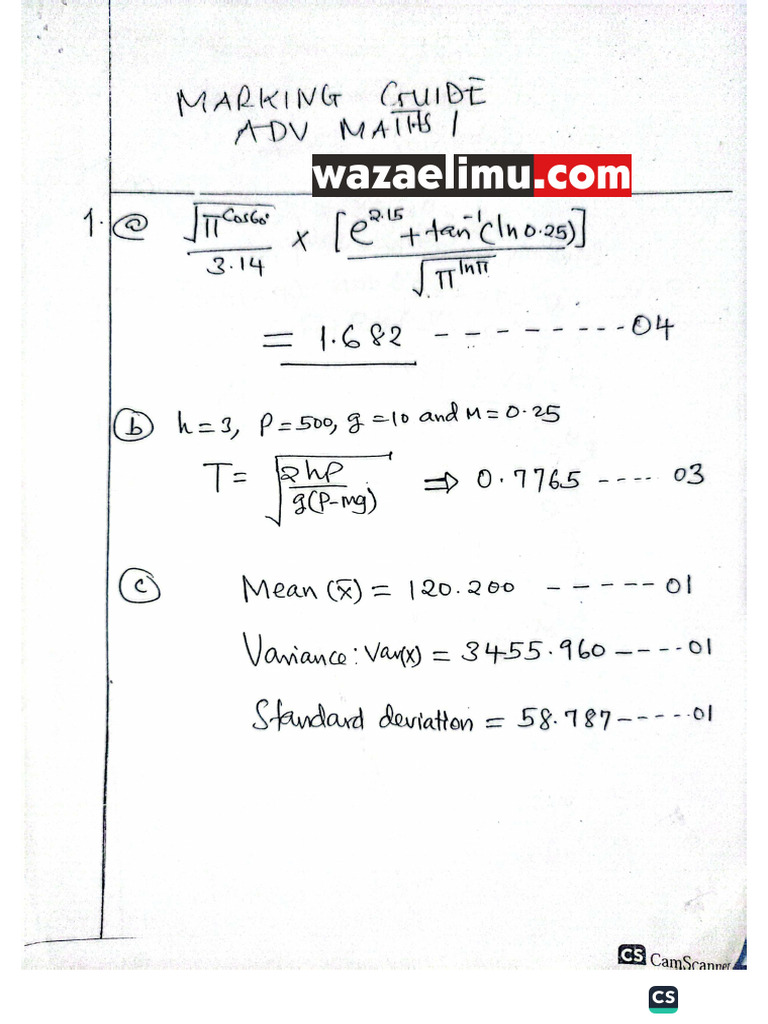 MARKING GUIDE
ADV MATHS 1
wazaelimu.com
1. (a) √π^cos60° / 3.14 × [e^2.15 + tan^-1(ln 0.25)] / √π^lnπ
= 1.682 --------- 04
(b) h=3, P=500, g=10 and M=0.25
T= √(2hP / g(P-mg)) ⇒ 0.7765 ---- 03
(c) Mean (x̄) = 120.200 ----- 01
Variance: Var(x) = 3455.960 ---- 01
Standard deviation = 58.787 ----- 01
CS CamScanner
CS